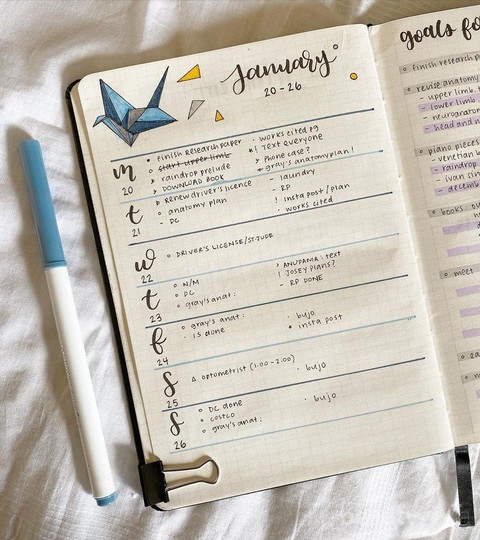 January
20-26
m
20
finish research paper
start upper limb
raindrop prelude
DOWNLOAD BOOK
works cited pg
! Text everyone
Phone case?
gray's anatomy plan!
t
21
Renew driver's licence
anatomy plan
- DC
- laundry
- RP
! insta post / plan
works cited
w
22
DRIVER'S LICENSE/ST.JUDE
t
23
N/M
DC
gray's anat:
> ANUPAMA: text
! JOSEY plans?
- RP DONE
f
24
gray's anat:
- is done
bujo
insta post
s
25
optometrist (1:00-2:00)
bujo
s
26
DC done
costco
gray's anat:
bujo
goals fo
finish research p
revise anatomy
- upper limb, t
- lower limb
- neuroanato
- head and n
piano pieces
- venetian b
- raindrop
- ivan sin
- decemb
books
meet